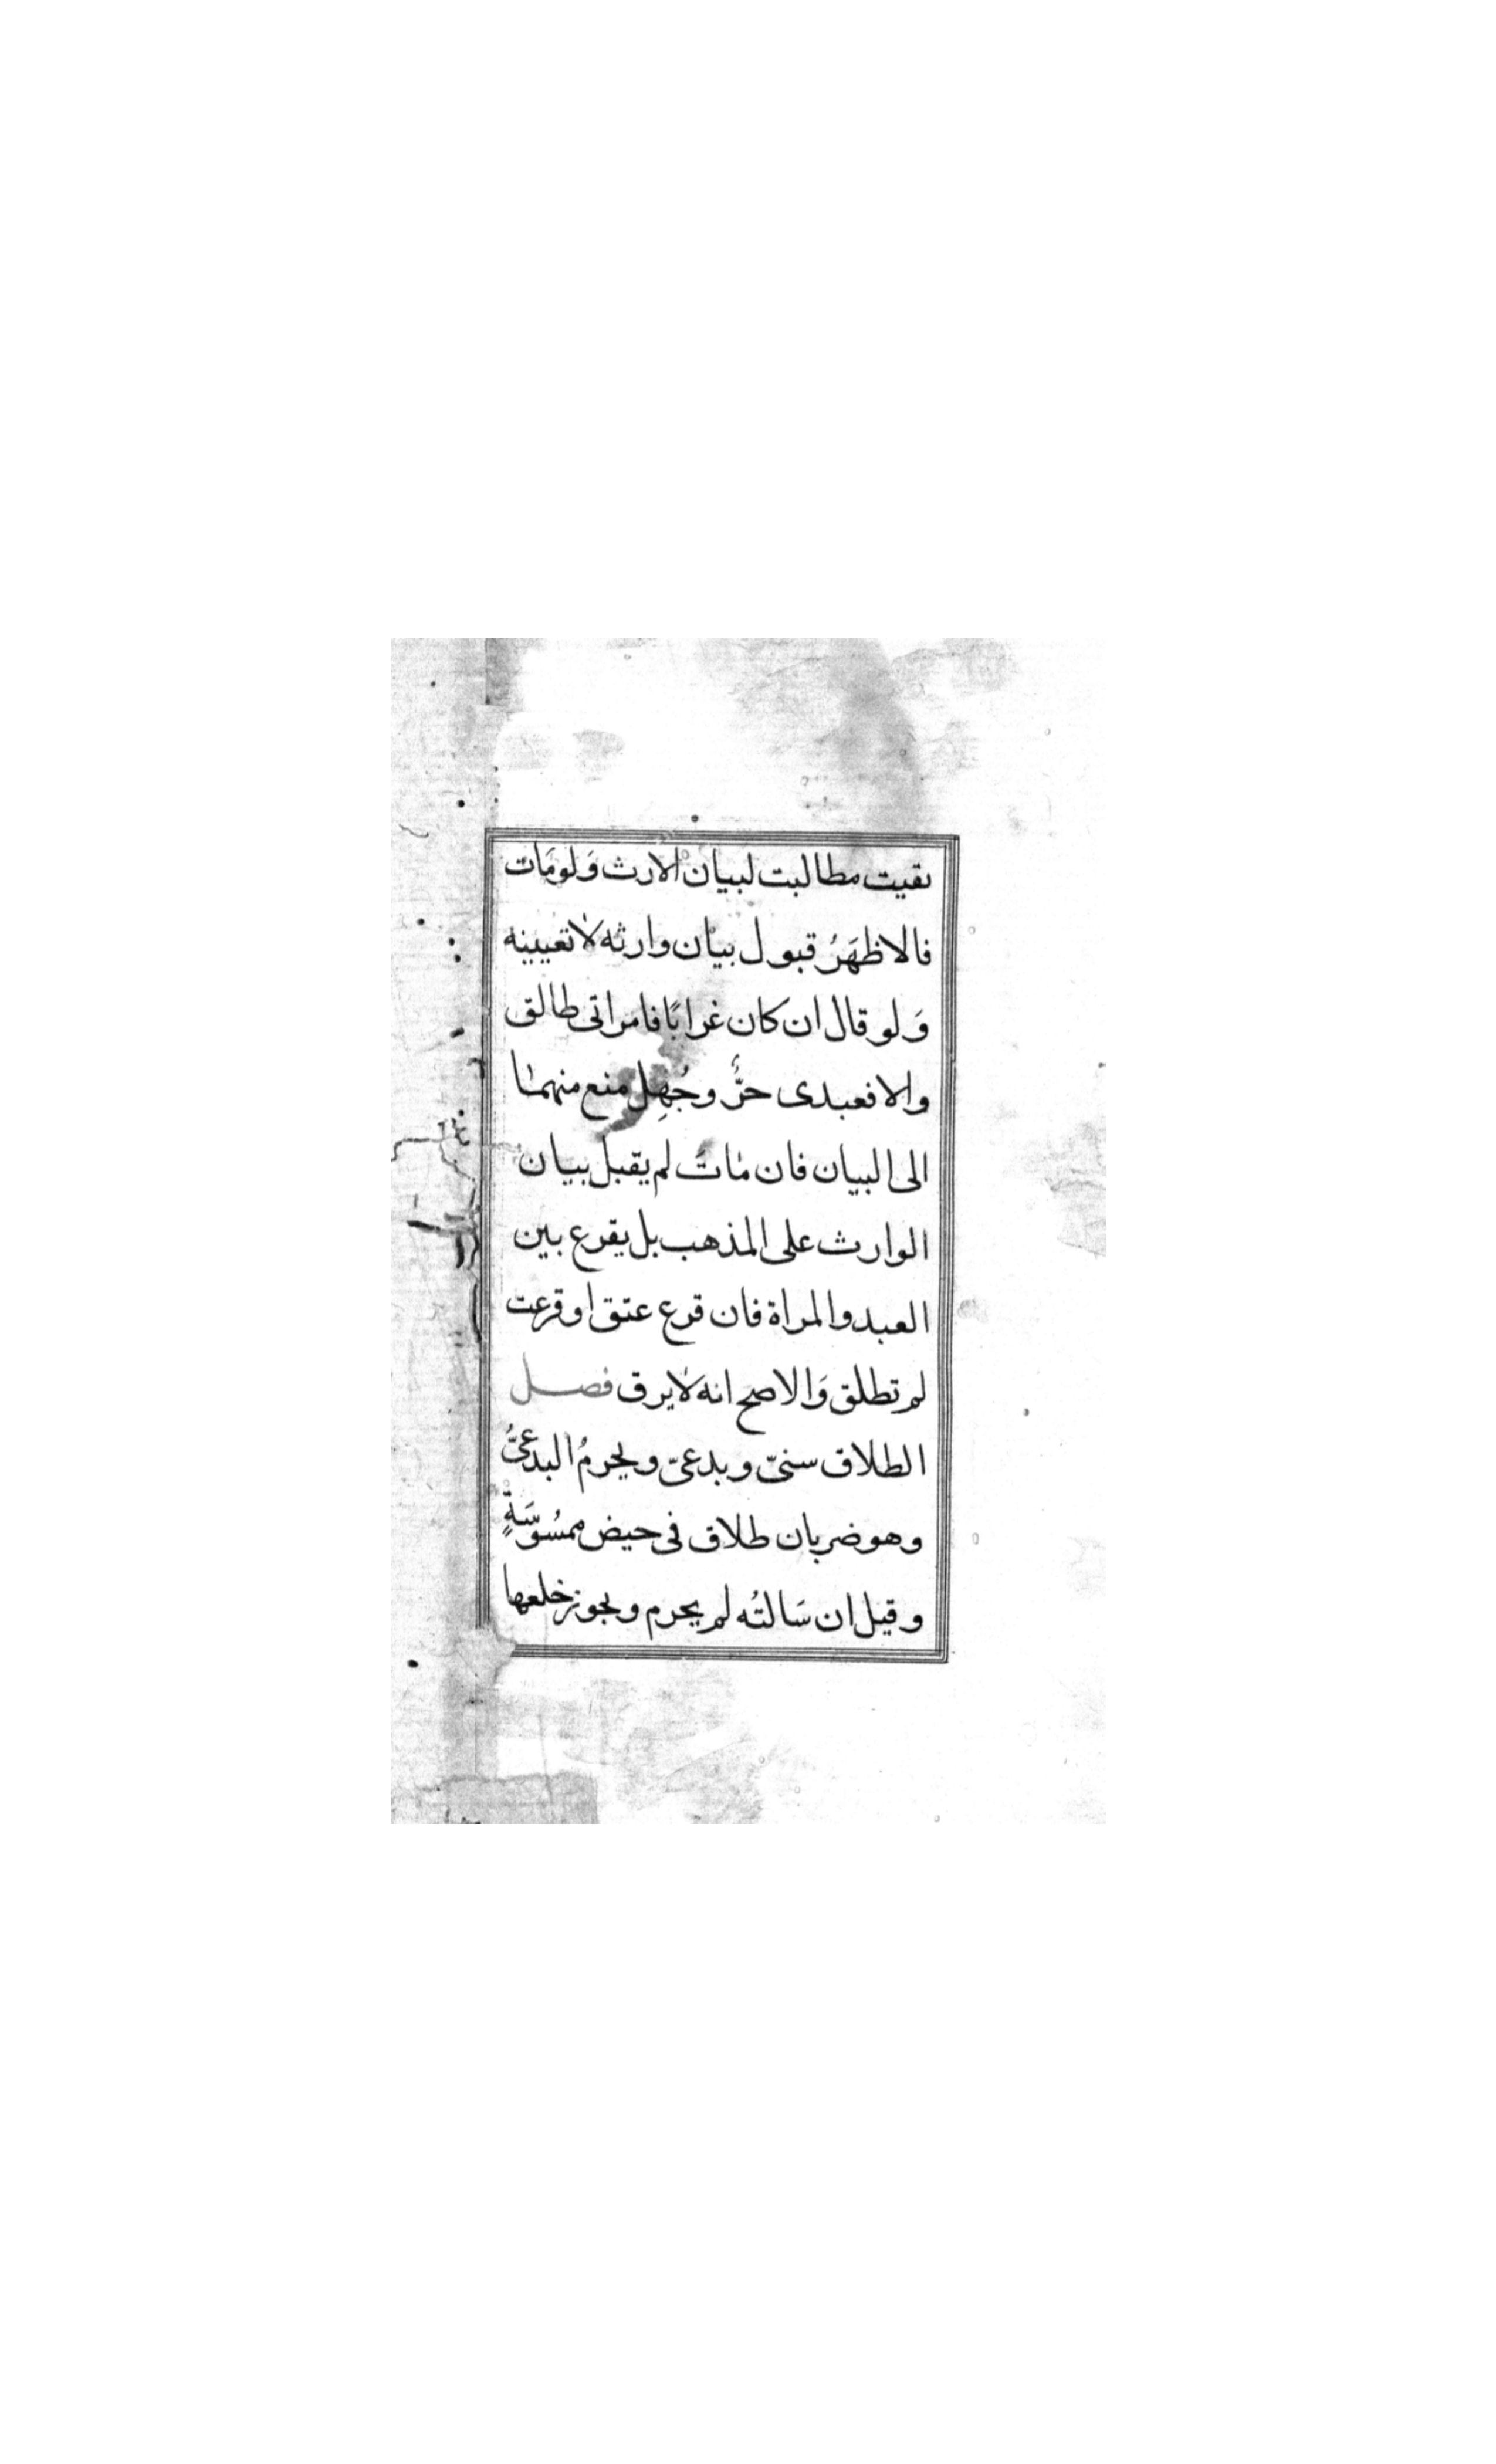 بقيت مطالبت لبيان الارث وَلومَات
فالاظهَرُ قبول بيان وارثه لا تعيينه
وَلو قال ان كان غرابًا فامراتى طالق
والا فعبدى حرٌّ وجُهِل منع منهما
الى البيان فان مات لم يقبل بيان
الوارث على المذهب بل يقرع بين
العبد والمراة فان قرع عتق او قرعت
لم تطلق وَالاصح انه لا يرق فصل
الطلاق سنىّ وبدعىّ ويحرمُ البدعىُّ
وهو ضربان طلاق فى حيض ممسُوسَةٍ
وقيل ان سَالتُه لم يحرم ويجوز خلعها